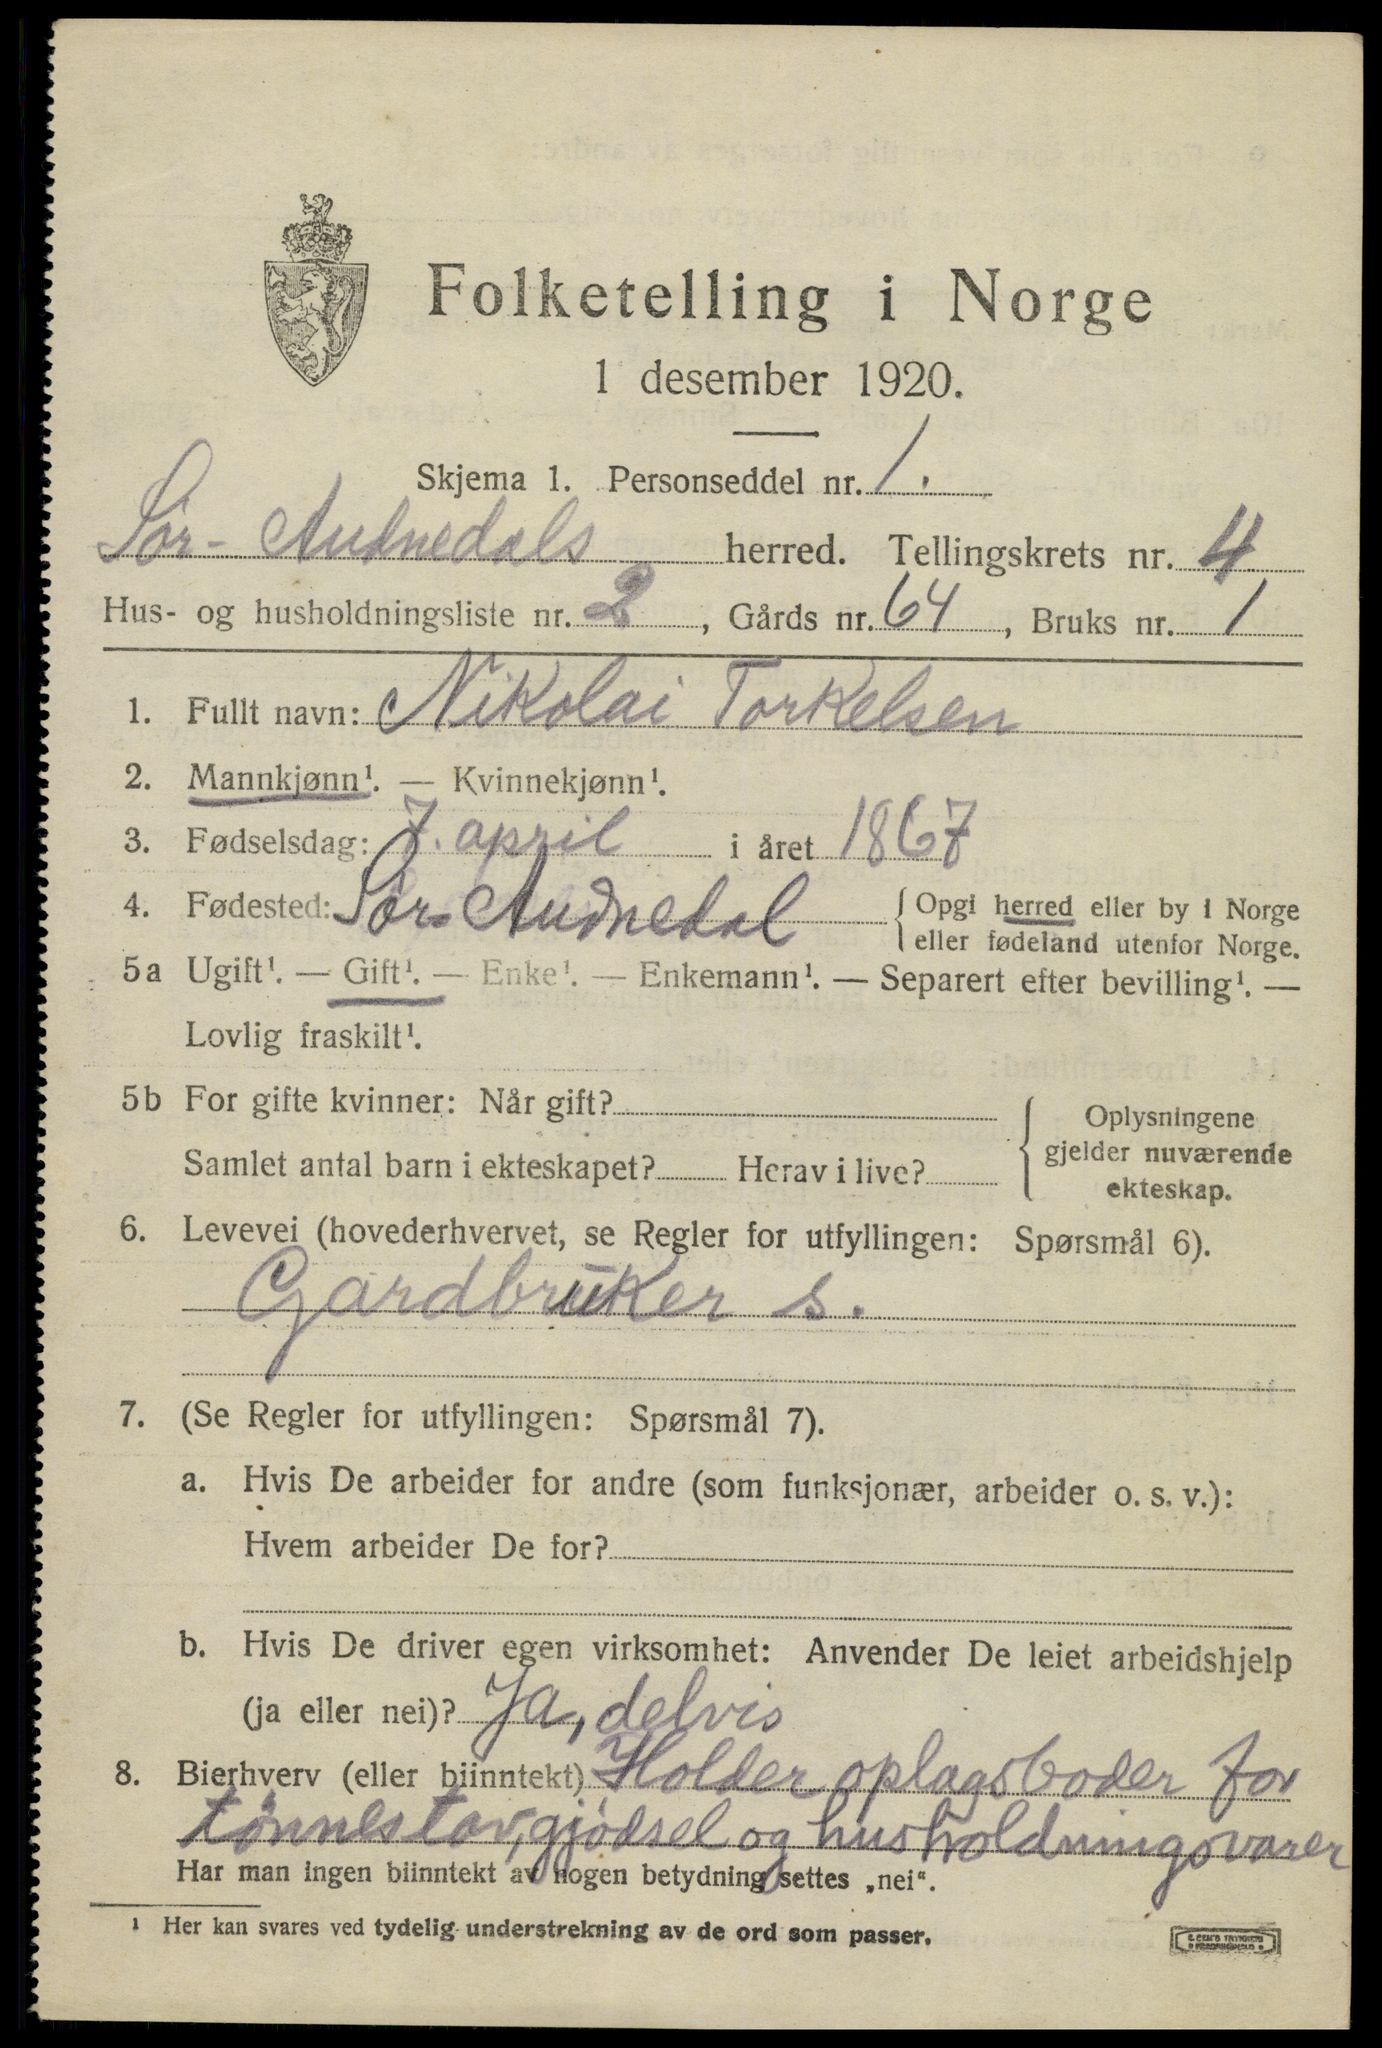 Folketelling i Norge
1 desember 1920.
Skjema 1. Personseddel nr. 1.
Sør-Audnedals herred. Tellingskrets nr. 4
Hus- og husholdningsliste nr. 2, Gårds nr. 64, Bruks nr. 1
1. Fullt navn: Nikolai Torkelsen
2. Mannkjønn¹. — Kvinnekjønn¹.
3. Fødselsdag: 7. april i året 1867
4. Fødested: Sør-Audnedal { Opgi herred eller by i Norge
eller fødeland utenfor Norge.
5a Ugift¹. — Gift¹. — Enke¹. — Enkemann¹. — Separert efter bevilling¹. —
Lovlig fraskilt¹.
5b For gifte kvinner: Når gift? { Oplysningene
gjelder nuværende
Samlet antal barn i ekteskapet? Herav i live?
ekteskap.
6. Levevei (hovederhvervet, se Regler for utfyllingen: Spørsmål 6).
Gjårdbruker s.
7. (Se Regler for utfyllingen: Spørsmål 7).
a. Hvis De arbeider for andre (som funksjonær, arbeider o. s. v.):
Hvem arbeider De for?
b. Hvis De driver egen virksomhet: Anvender De leiet arbeidshjelp
(ja eller nei)? Ja, delvis
8. Bierhverv (eller biinntekt) Holder oplagsboder for
tønnestav, gjødsel og husholdningsvarer
Har man ingen biinntekt av nogen betydning settes „nei“.
¹ Her kan svares ved tydelig understrekning av de ord som passer.